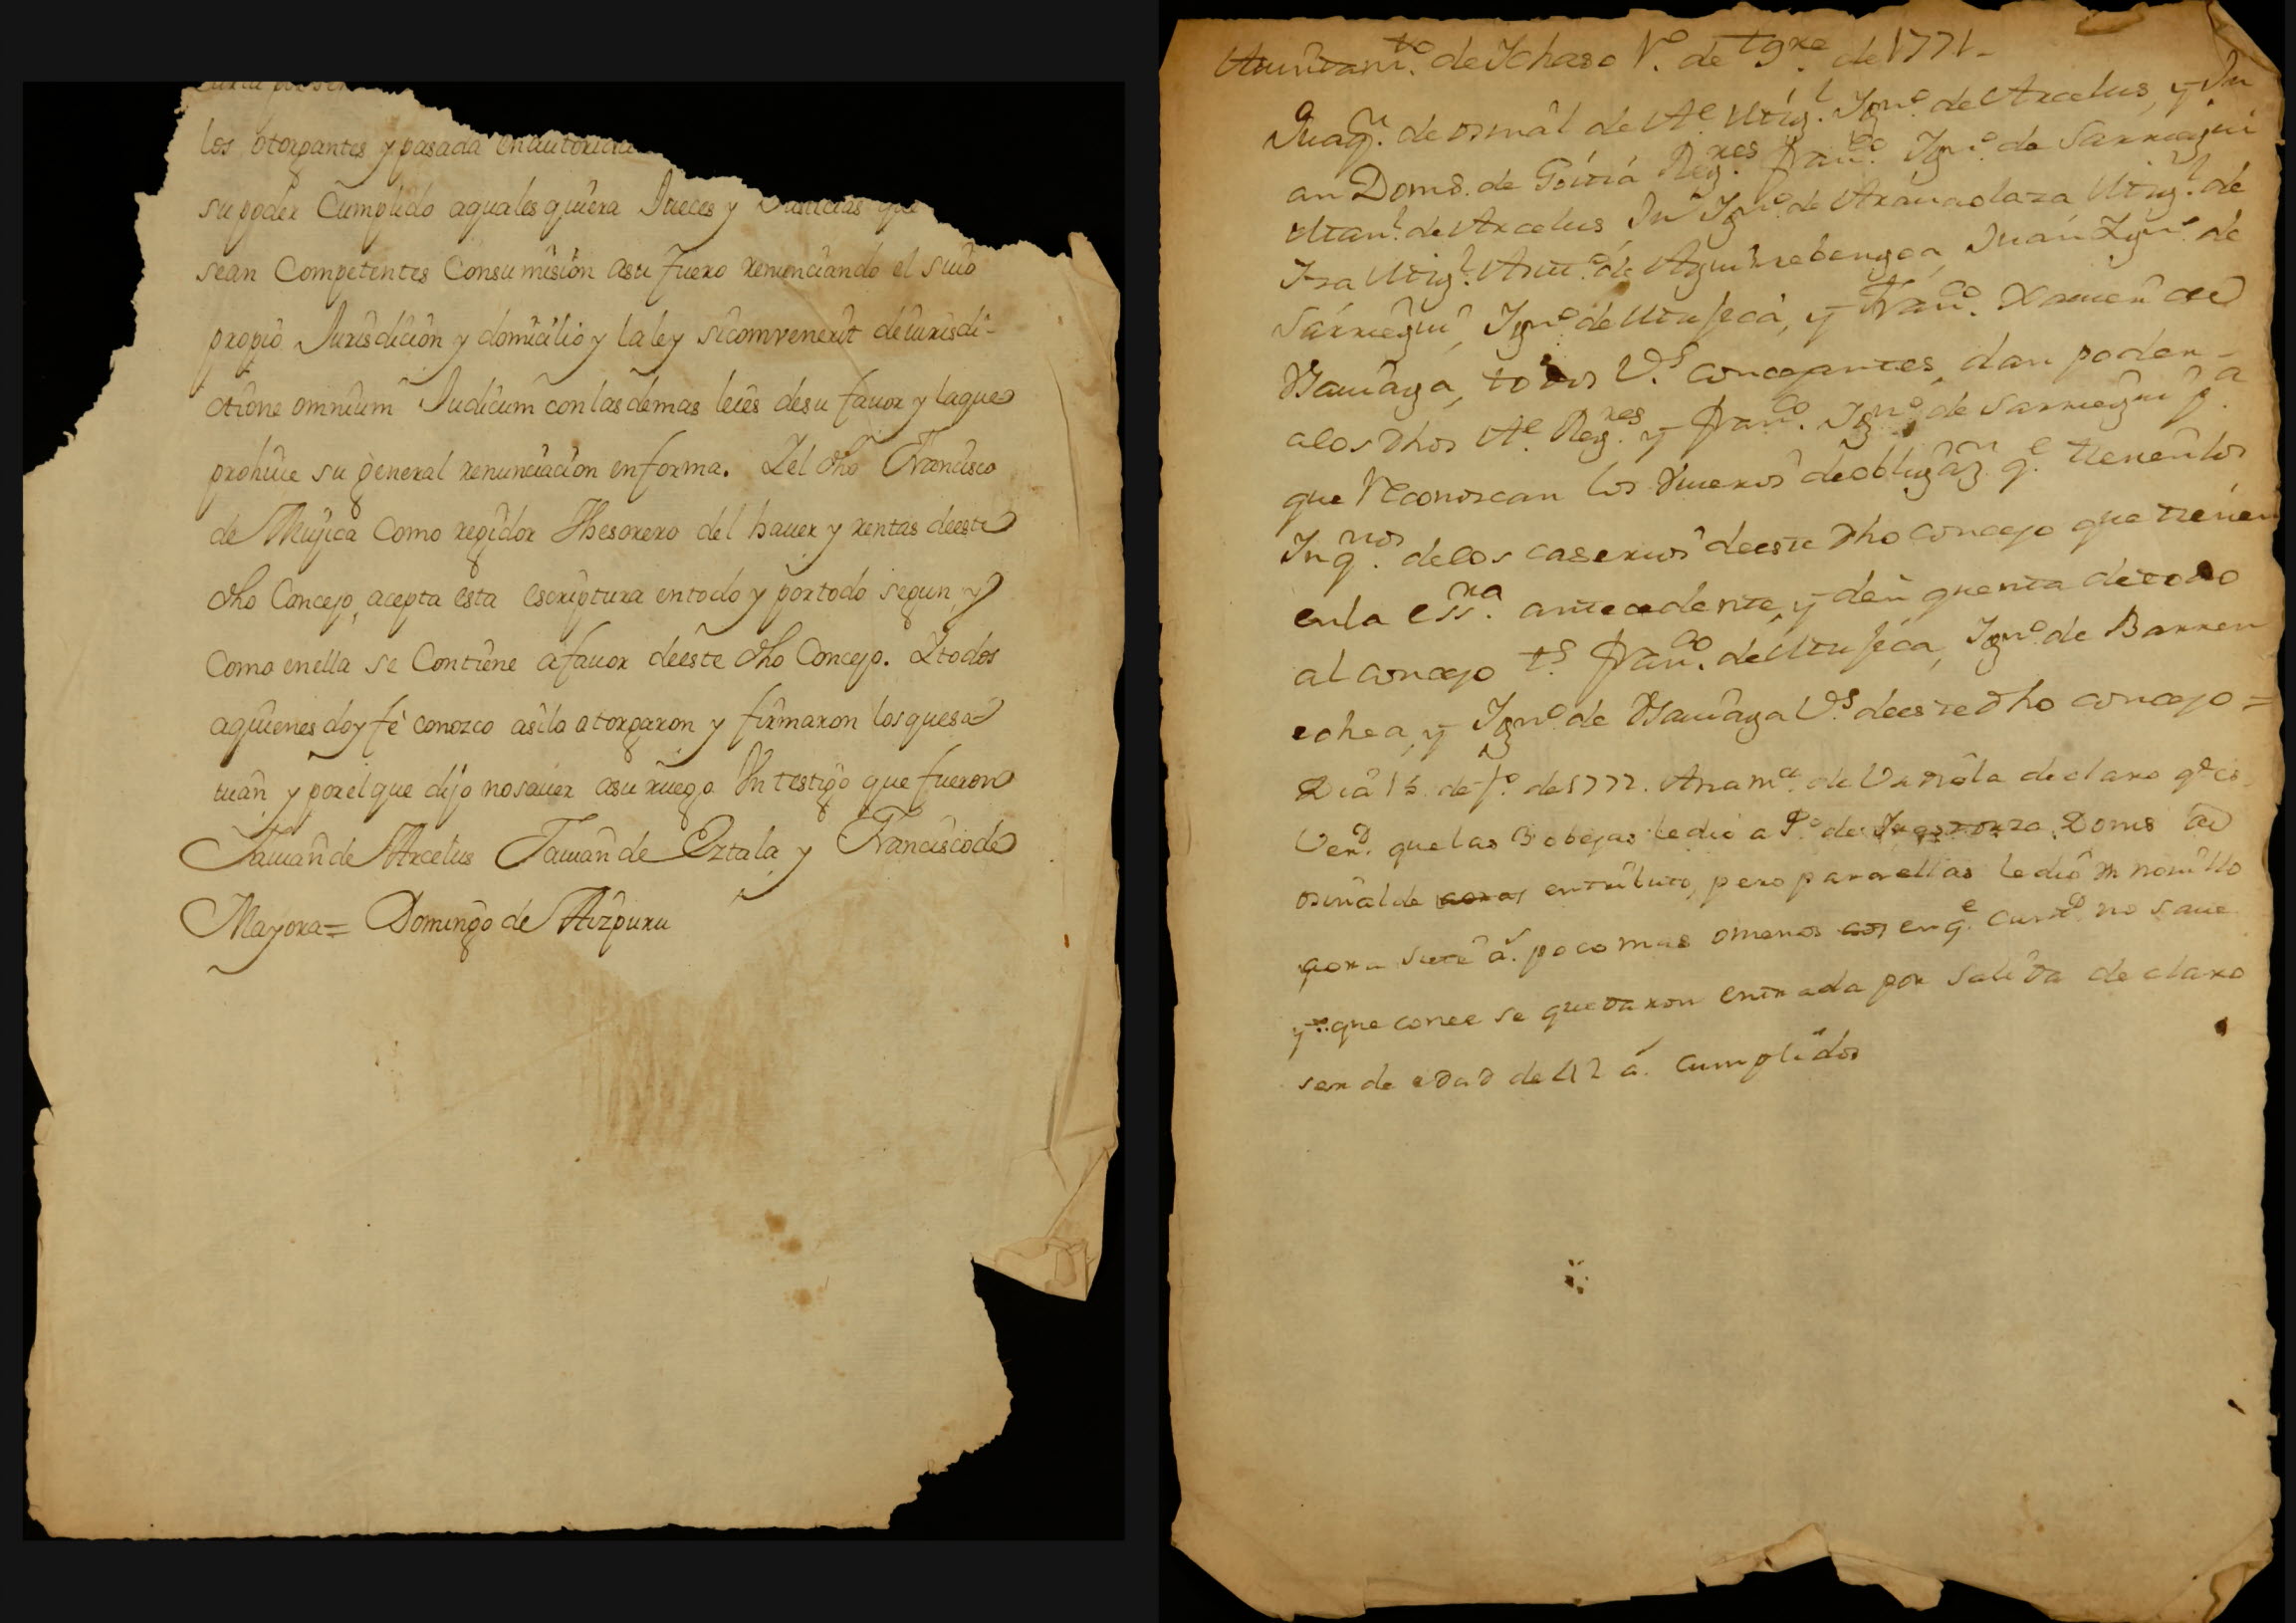 los otorgantes y pasada en autorida
su poder Cumplido aqualesquiera Jueces y Justicias que
sean Competentes Consumision asu fuero renunciando el suio
propio Jurisdicion y domicilio y la ley sicomvenerit de iurisdi-
ctione omnium Judicum con las demas leies desu favor y laque
prohive su general renunciacion en forma. Y el dho Francisco
de Mujica Como regidor Thesorero del haver y rentas deeste
dho Concejo, acepta esta escriptura entodo y portodo segun, y
Como enella se Contiene afavor deeste dho Concejo. Y todos
aquienes doy fé conozco asilo otorgaron y firmaron losquesa-
vian y porelque dijo nosaver asu ruego Un testigo que fueron
de Arcelus de Eztala y Francisco de
Mayora = Domingo de Aizpuru
de Ichaso de 1771-
Juaqn. de osinal de Ae. Mig.l Ign.o de Arcelus, y Ju
an Doms. de Goitia Reg.res Fran.co Ign.o de Sarriegui
Man.l de Arcelus Jn Ign.o de Aramaolaza Mig.l de
Yza Mig.l Ant.o de Aguirrebengoa, Juan Ign.o de
Sarriegui, Ign.o de Mujica, y Fran.co Xavier de
todos V.s concejantes, dan poder
alos dhos Ae. Reg.res y Fran.co Ign.o de Sarriegui p.a
que Reconoscan los de obligaz.n q.e tienen los
Inq.nos delos caserios deeste dho concejo que tienen
enla ess.ra antecedente, y den quenta detodo
al concejo t.s Fran.co de Mujica, Ign.o de Barren
echea, y Ign.o de V.s deeste dho concejo =
Dia 15 de de 1772. Ana m.a de declaro q.e es
Verd. que las 3 obejas le dio a P.o de Doms de
osinalde entributo, pero para ellas le dio un novillo
aora siete a. poco mas omenos en q.e no save
y que conee se quedaron entrada por salida declaro
ser de edad de 42 a. cumplidos